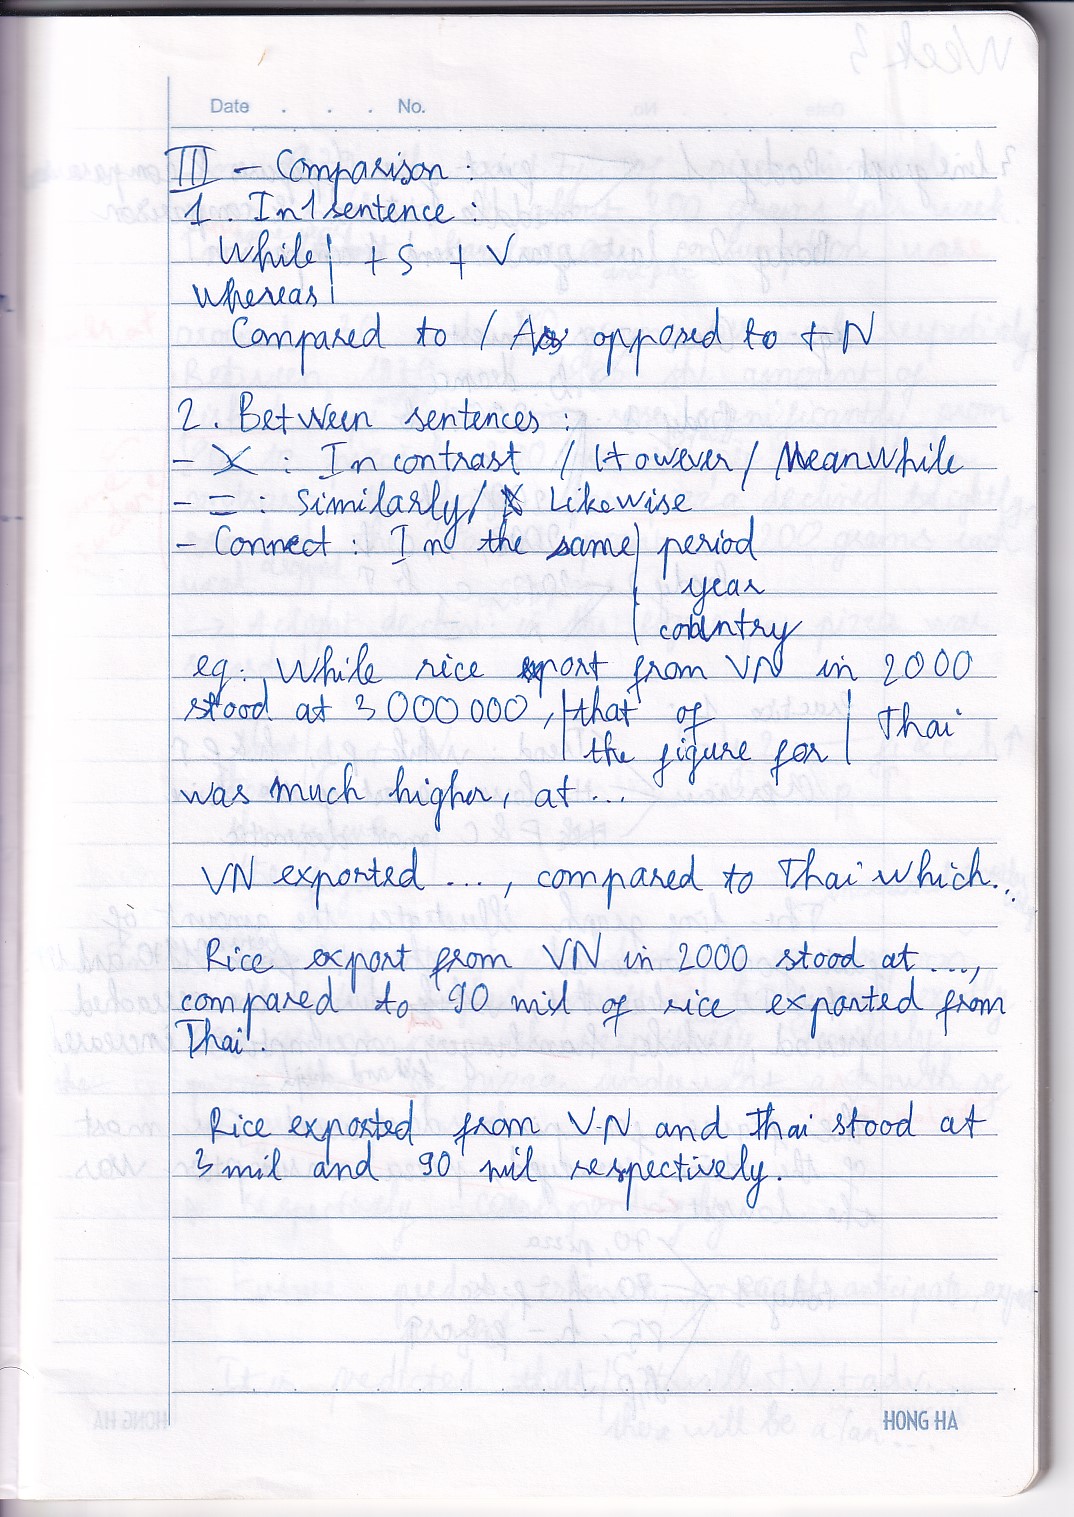 Date . . . No.
III - Comparison :
1. In 1 sentence :
While | + S + V
whereas |
Compared to / As opposed to + N
2. Between sentences :
- X : In contrast / However / Meanwhile
- = : Similarly / Likewise
- Connect : In the same | period
year
country
eg: While rice export from VN in 2000
stood at 3 000 000, | that of | Thai
the figure for
was much higher, at ...
VN exported ..., compared to Thai which...
Rice export from VN in 2000 stood at ...,
compared to 90 mil of rice exported from
Thai.
Rice exported from VN and Thai stood at
3 mil and 90 mil respectively.
HONG HA